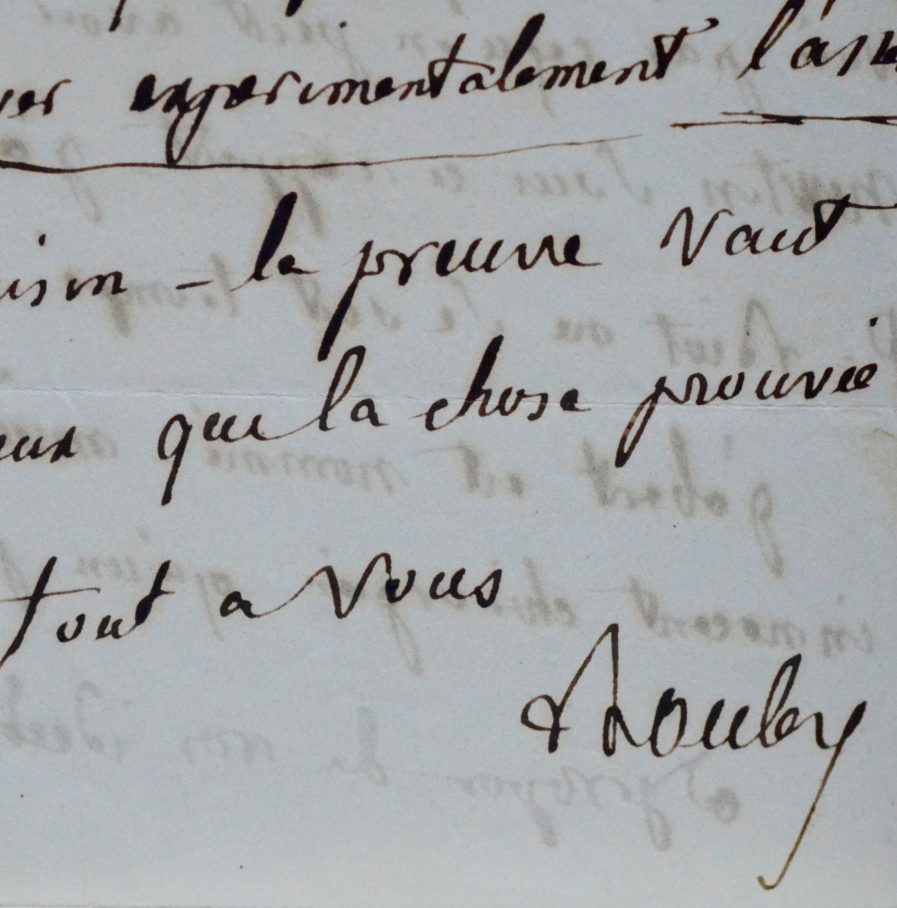 ver experimentalement l'as
ison - la preuve vaut
eux que la chose prouvée
tout a vous
Rouby